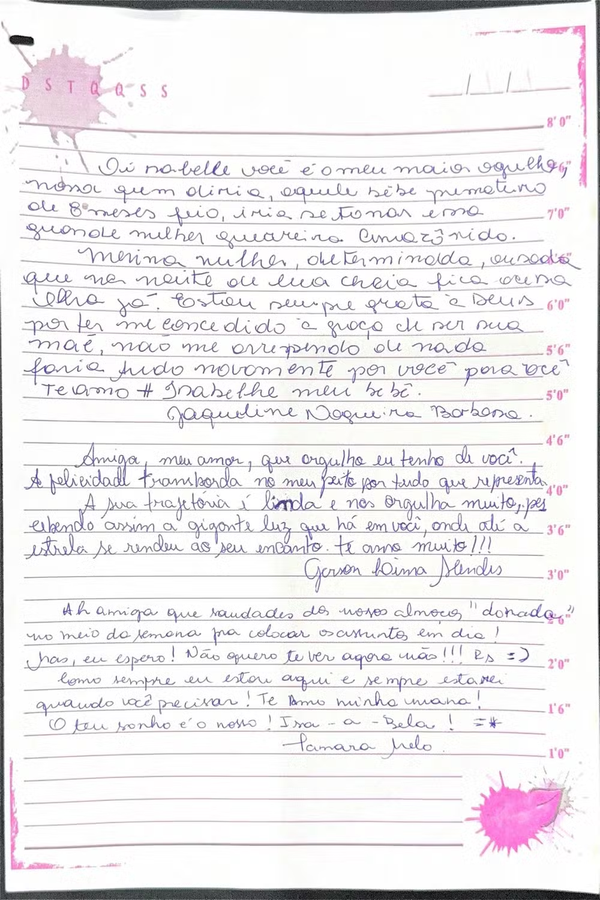 D S T Q Q S S
/ /
8'0"
Oi isabelle você é o meu maior orgulho,
nossa quem diria, aquele bêbe prematuro
de 8 meses feio, iria se tornar essa
7'0"
grande mulher guerreira
Menina mulher, determinada, ousada
que na noite de lua cheia fica acesa
ilha já. Estou sempre grata a Deus
6'0"
por ter me concedido a graça de ser sua
mãe, não me arrependo de nada
5'6"
faria tudo novamente por você para você
Te amo # Isabelhe meu bebê.
5'0"
Jaqueline Nogueira Barbosa.
4'6"
Amiga, meu amor, que orgulho eu tenho de você.
A felicidade transborda no meu peito por tudo que representa
4'0"
A sua trajetória é linda e nos orgulha muito, per
cebendo assim a gigante luz que há em você, onde até a
3'6"
estrela se rendeu ao seu encanto. te amo muito!!!
Gerson Lima Mendes
3'0"
Ah amiga que saudades dos nossos almoços "donada"
no meio da semana pra colocar os assuntos em dia!
Mas, eu espero! Não quero te ver agora não!!! Rs =)
2'0"
Como sempre eu estou aqui e sempre estarei
quando você precisar! Te Amo minha mana!
1'6"
O teu sonho é o nosso! Isa - a - Bela! =*
Tamara Melo.
1'0"